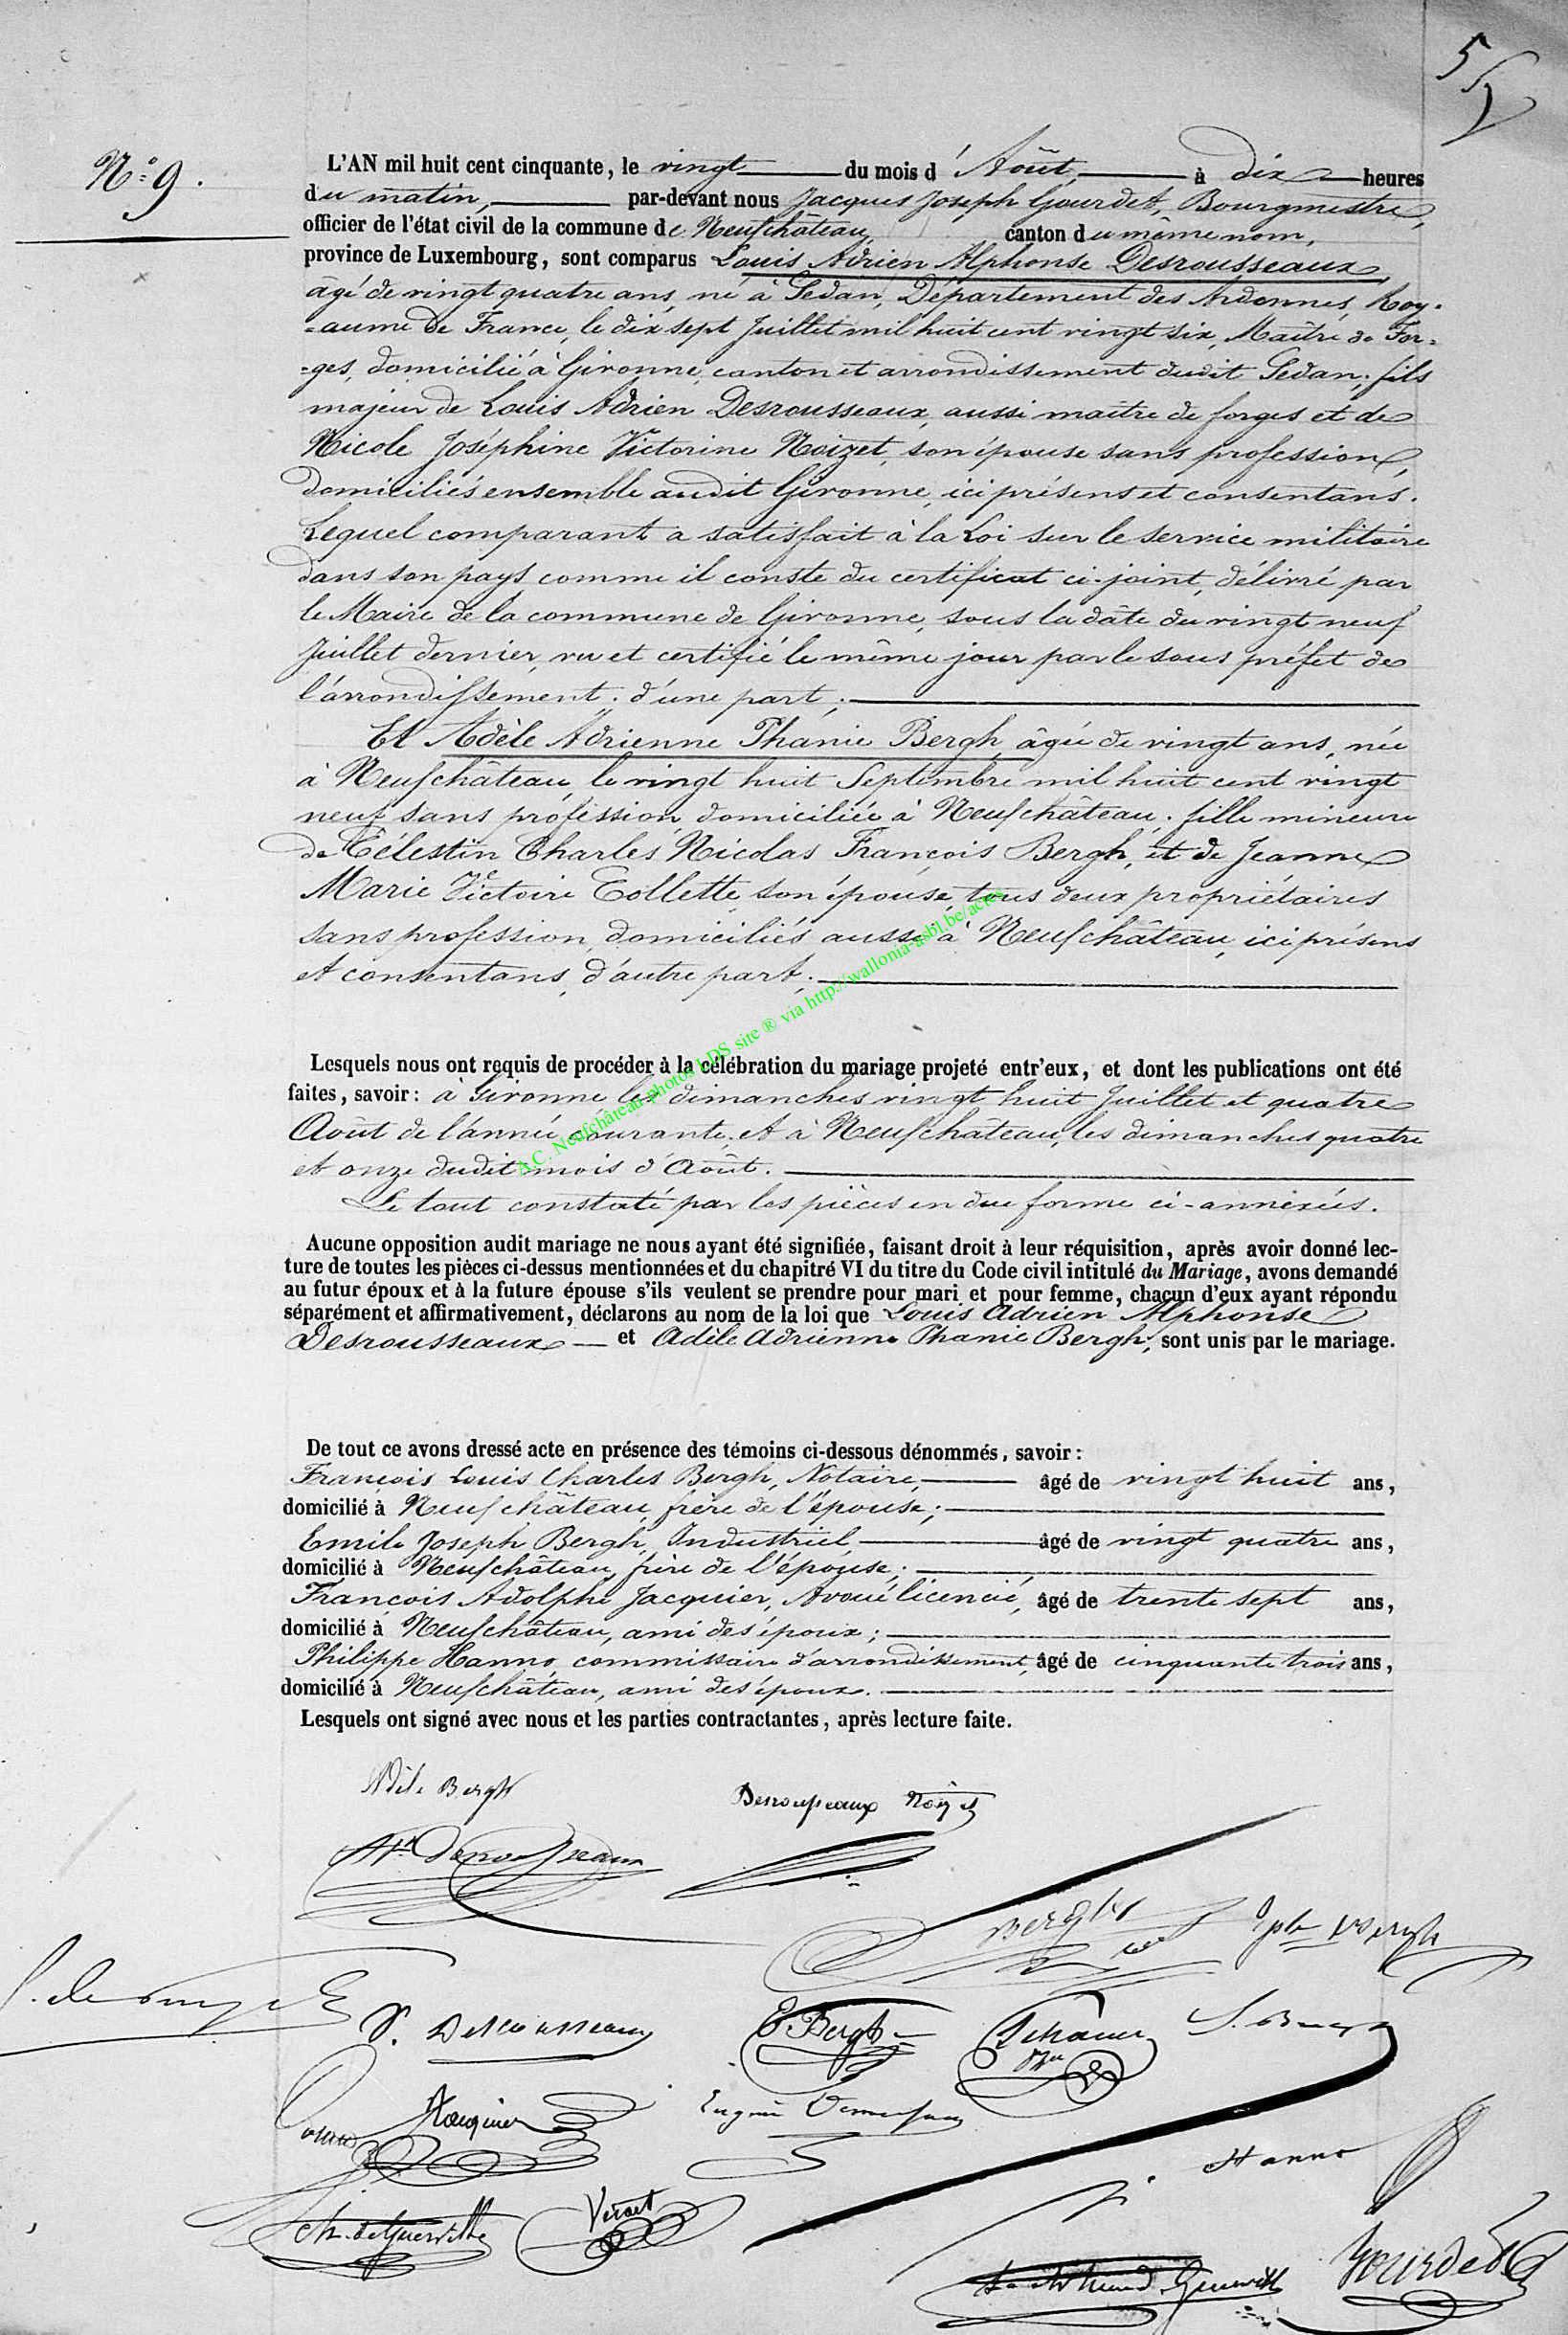 5
N.° 9.
L'AN mil huit cent cinquante, le vingt du mois d'Août, à dix heures
du matin, par-devant nous Jacques Joseph Gourdet, Bourgmestre,
officier de l'état civil de la commune de Neufchâteau, canton du même nom,
province de Luxembourg, sont comparus Louis Adrien Alphonse Desrousseaux,
âgé de vingt quatre ans, né à Sedan, Département des Ardennes, Roy-
=aume de France, le dix sept Juillet mil huit cent vingt six, Maître de For-
=ges, domicilié à Givonne, canton et arrondissement dudit Sedan; fils
majeur de Louis Adrien Desrousseaux, aussi maître de forges et de
Nicole Joséphine Victorine Noizet, son épouse sans profession,
domiciliés ensemble audit Givonne, ici présens et consentans.
Lequel comparant a satisfait à la Loi sur le service militaire
dans son pays comme il conste du certificat ci-joint, délivré par
le Maire de la commune de Givonne, sous la dâte du vingt neuf
Juillet dernier, vu et certifié le même jour par le sous préfet de
l'arrondissement; d'une part;
Et Adèle Adrienne Phanie Bergh, âgée de vingt ans, née
à Neufchâteau, le vingt huit Septembre mil huit cent vingt
neuf sans profession, domiciliée à Neufchâteau; fille mineure
de Célestin Charles Nicolas François Bergh, et de Jeanne
Marie Victoire Collette, son épouse, tous deux propriétaires
sans profession, domiciliés aussi à Neufchâteau, ici présens
et consentans, d'autre part;
Lesquels nous ont requis de procéder à la célébration du mariage projeté entr'eux, et dont les publications ont été
faites, savoir: à Givonne les dimanches vingt huit Juillet et quatre
Août de l'année courante, et à Neufchâteau, les dimanches quatre
et onze dudit mois d'Août.
Le tout constaté par les pièces en due forme ci-annexées.
Aucune opposition audit mariage ne nous ayant été signifiée, faisant droit à leur réquisition, après avoir donné lec-
ture de toutes les pièces ci-dessus mentionnées et du chapitré VI du titre du Code civil intitulé du Mariage, avons demandé
au futur époux et à la future épouse s'ils veulent se prendre pour mari et pour femme, chacun d'eux ayant répondu
séparément et affirmativement, déclarons au nom de la loi que Louis Adrien Alphonse
Desrousseaux et Adèle Adrienne Phanie Bergh, sont unis par le mariage.
De tout ce avons dressé acte en présence des témoins ci-dessous dénommés, savoir:
François Louis Charles Bergh, Notaire, âgé de vingt huit ans,
domicilié à Neufchâteau, frère de l'épouse;
Emile Joseph Bergh, Industriel, âgé de vingt quatre ans,
domicilié à Neufchâteau, frère de l'épouse;
François Adolphe Jacquier, Avoué licencié, âgé de trente sept ans,
domicilié à Neufchâteau, ami des époux;
Philippe Hanno, commissaire d'arrondissement, âgé de cinquante trois ans,
domicilié à Neufchâteau, ami des époux.
Lesquels ont signé avec nous et les parties contractantes, après lecture faite.
A.C. Neufchâteau photos LDS site ® via http://wallonia-asbl.be/actes
Adèle Bergh
Desrousseaux Noizet
Desrousseaux
Bergh
Bergh
Desrousseaux
E. Bergh
Jacquier
Hanno
Ch. de Guerville
Gourdet